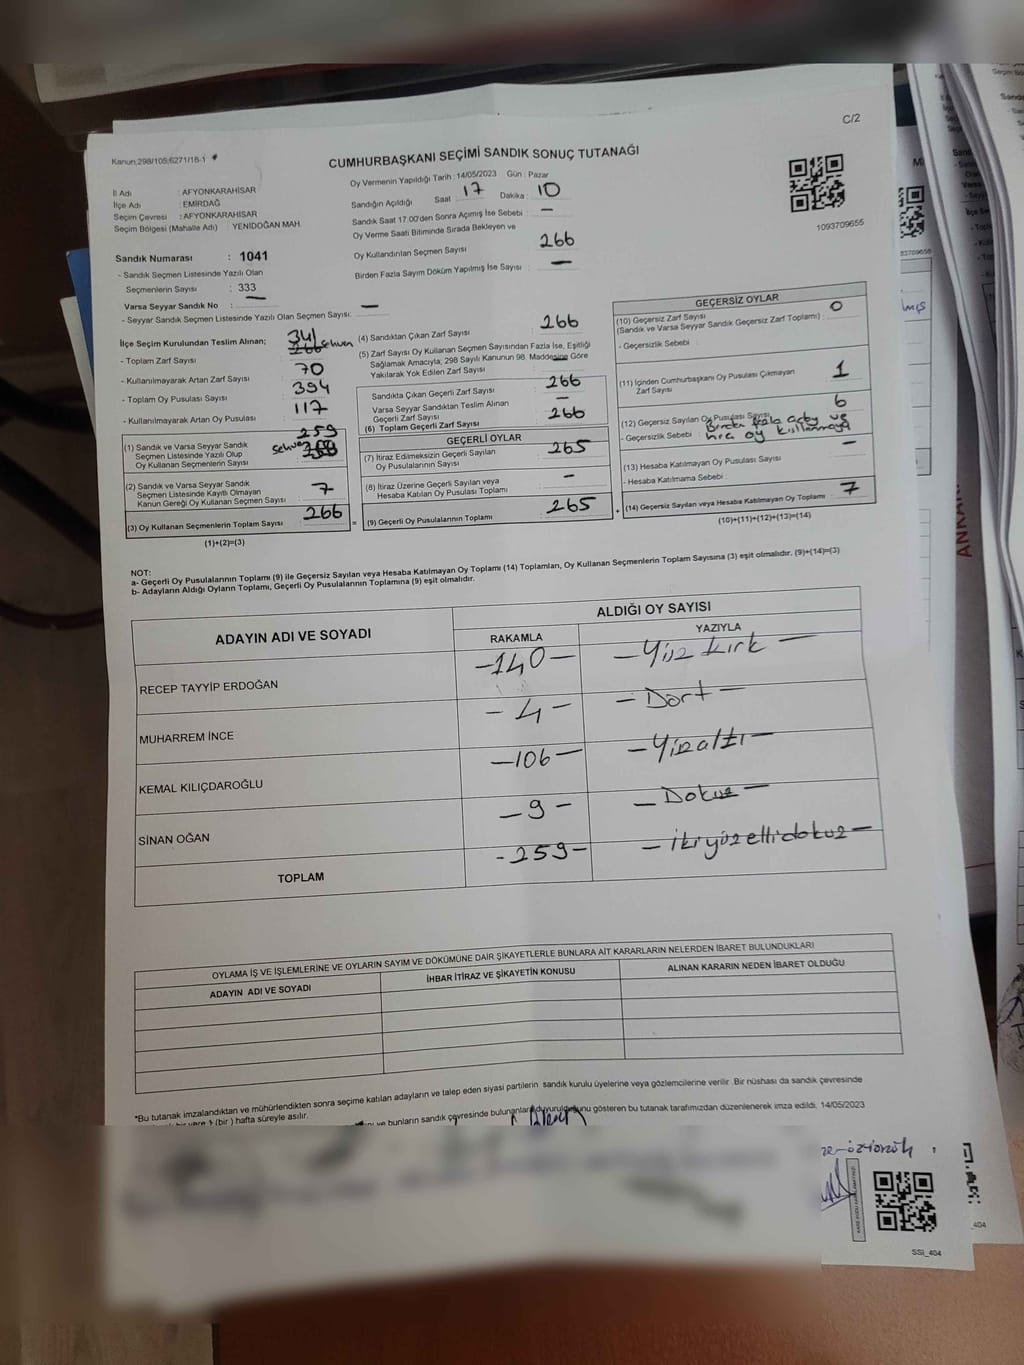 C/2
Kanun;298/105;6271/18-1
CUMHURBAŞKANI SEÇİMİ SANDIK SONUÇ TUTANAĞI
İl Adı : AFYONKARAHİSAR
İlçe Adı : EMİRDAĞ
Seçim Çevresi : AFYONKARAHİSAR
Seçim Bölgesi (Mahalle Adı) : YENİDOĞAN MAH.
Oy Vermenin Yapıldığı Tarih : 14/05/2023 Gün : Pazar
Sandığın Açıldığı Saat 17 Dakika : 10
Sandık Saat 17.00'den Sonra Açımış İse Sebebi : —
Oy Verme Saati Bitiminde Sırada Bekleyen ve
Oy Kullandırılan Seçmen Sayısı 266
Birden Fazla Sayım Döküm Yapılmış İse Sayısı : —
1093709655
Sandık Numarası : 1041
- Sandık Seçmen Listesinde Yazılı Olan
Seçmenlerin Sayısı : 333
Varsa Seyyar Sandık No : —
- Seyyar Sandık Seçmen Listesinde Yazılı Olan Seçmen Sayısı: —
İlçe Seçim Kurulundan Teslim Alınan;
341
266 Sehven
- Toplam Zarf Sayısı
- Kullanılmayarak Artan Zarf Sayısı : 70
- Toplam Oy Pusulası Sayısı 394
- Kullanılmayarak Artan Oy Pusulası : 117
259
(1) Sandık ve Varsa Seyyar Sandık
Seçmen Listesinde Yazılı Olup
Oy Kullanan Seçmenlerin Sayısı
(2) Sandık ve Varsa Seyyar Sandık
Seçmen Listesinde Kayıtlı Olmayan
Kanun Gereği Oy Kullanan Seçmen Sayısı : 7
(3) Oy Kullanan Seçmenlerin Toplam Sayısı 266
(1)+(2)=(3)
(4) Sandıktan Çıkan Zarf Sayısı 266
(5) Zarf Sayısı Oy Kullanan Seçmen Sayısından Fazla İse, Eşitliği
Sağlamak Amacıyla, 298 Sayılı Kanunun 98. Maddesine Göre
Yakılarak Yok Edilen Zarf Sayısı :
Sandıkta Çıkan Geçerli Zarf Sayısı 266
Varsa Seyyar Sandıktan Teslim Alınan
Geçerli Zarf Sayısı —
(6) Toplam Geçerli Zarf Sayısı 266
GEÇERLİ OYLAR
(7) İtiraz Edilmeksizin Geçerli Sayılan
Oy Pusulalarının Sayısı 265
(8) İtiraz Üzerine Geçerli Sayılan veya
Hesaba Katılan Oy Pusulası Toplamı —
(9) Geçerli Oy Pusulalarının Toplamı 265
GEÇERSİZ OYLAR
(10) Geçersiz Zarf Sayısı
(Sandık ve Varsa Seyyar Sandık Geçersiz Zarf Toplamı) : 0
- Geçersizlik Sebebi :
(11) İçinden Cumhurbaşkanı Oy Pusulası Çıkmayan
Zarf Sayısı 1
(12) Geçersiz Sayılan Oy Pusulası Sayısı 6
- Geçersizlik Sebebi : Birden fazla ve
hiç oy
(13) Hesaba Katılmayan Oy Pusulası Sayısı —
- Hesaba Katılmama Sebebi :
(14) Geçersiz Sayılan veya Hesaba Katılmayan Oy Toplamı 7
(10)+(11)+(12)+(13)=(14)
NOT:
a- Geçerli Oy Pusulalarının Toplamı (9) ile Geçersiz Sayılan veya Hesaba Katılmayan Oy Toplamı (14) Toplamları, Oy Kullanan Seçmenlerin Toplam Sayısına (3) eşit olmalıdır. (9)+(14)=(3)
b- Adayların Aldığı Oyların Toplamı, Geçerli Oy Pusulalarının Toplamına (9) eşit olmalıdır.
ADAYIN ADI VE SOYADI
ALDIĞI OY SAYISI
RAKAMLA YAZIYLA
RECEP TAYYİP ERDOĞAN —140— —Yüz kırk—
MUHARREM İNCE —4— —Dört—
KEMAL KILIÇDAROĞLU —106— —Yüzaltı—
SİNAN OĞAN —9— —Dokuz—
TOPLAM -259— —ikiyüzellidokuz—
OYLAMA İŞ VE İŞLEMLERİNE VE OYLARIN SAYIM VE DÖKÜMÜNE DAİR ŞİKAYETLERLE BUNLARA AİT KARARLARIN NELERDEN İBARET BULUNDUKLARI
ADAYIN ADI VE SOYADI İHBAR İTİRAZ VE ŞİKAYETİN KONUSU ALINAN KARARIN NEDEN İBARET OLDUĞU
*Bu tutanak imzalandıktan ve mühürlendikten sonra seçime katılan adayların ve talep eden siyasi partilerin sandık kurulu üyelerine veya gözlemcilerine verilir .Bir nüshası da sandık çevresinde
(bir ) hafta süreyle asılır.
ve bunların sandık çevresinde bulunanlara duyurulduğunu gösteren bu tutanak tarafımızdan düzenlenerek imza edildi. 14/05/2023
SSİ_404